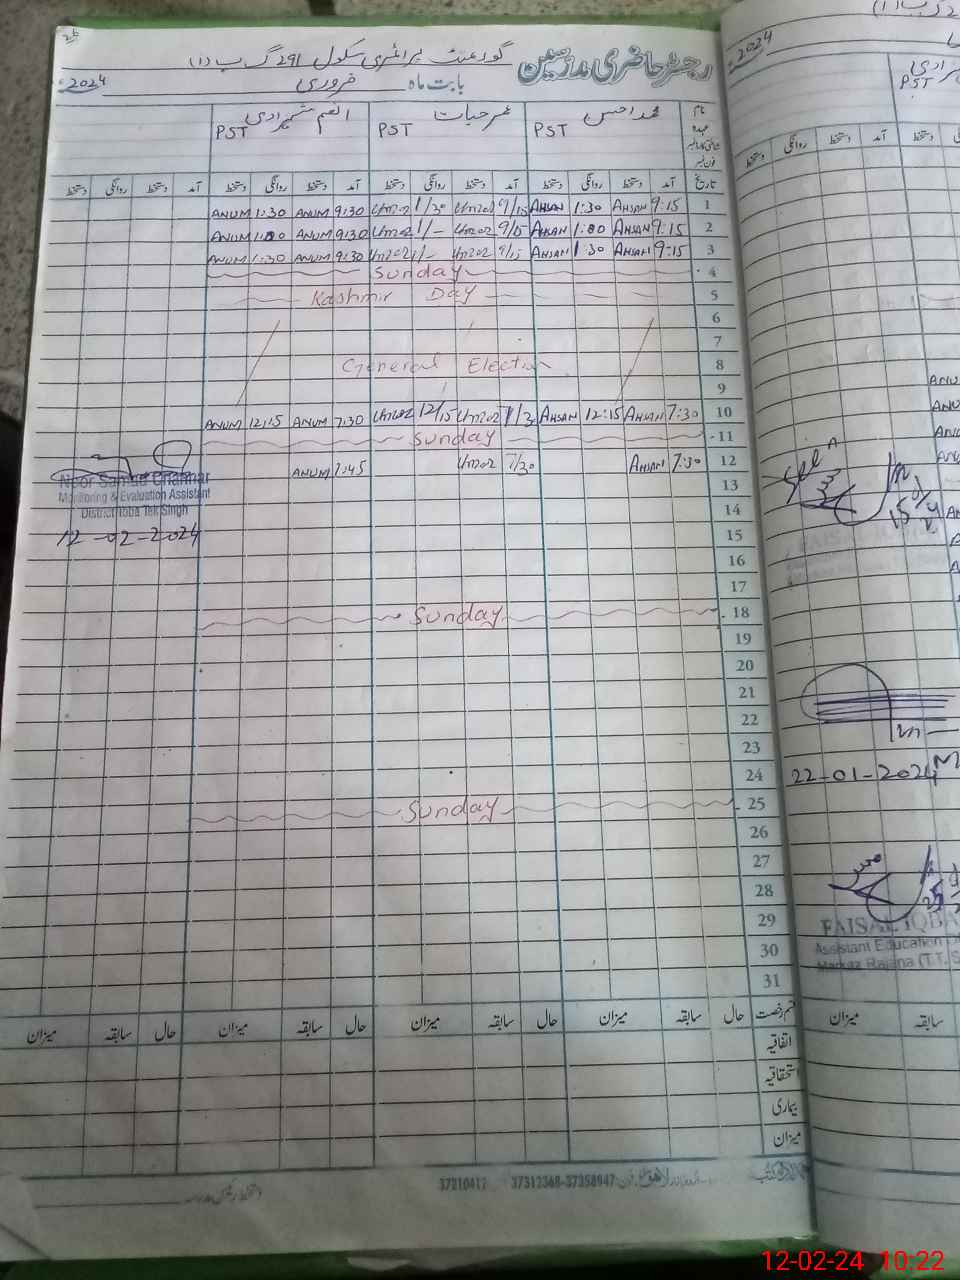 رجسٹر حاضری مدرسین گورنمنٹ پرائمری سکول 291 گ ب (i)
بابت ماہ فروری 2024ء
نام محمد احسن عمر حیات انعم شہزادی
عہدہ PST PST PST
تاریخ آمد دستخط روانگی دستخط آمد دستخط روانگی دستخط آمد دستخط روانگی دستخط آمد دستخط روانگی دستخط
1 9:15 AHSAN 1:30 AHSAN 9/15 Umar 1/30 Umar 9:30 ANUM 1:30 ANUM
2 9:15 AHSAN 1:00 AHSAN 9/15 Umar 1/- Umar 9:30 ANUM 1:00 ANUM
3 9:15 AHSAN 1:30 AHSAN 9/15 Umar 1/- Umar 9:30 ANUM 1:30 ANUM
4 Sunday
5 Kashmir Day
6
7
8 General Election
9
10 7:30 AHSAN 12:15 AHSAN 7/30 Umar 12/15 Umar 7:30 ANUM 12:15 ANUM
11 Sunday
12 7:30 AHSAN 7/30 Umar 7:45 ANUM
13
14
15
16
17
18 Sunday
19
20
21
22
23
24
25 Sunday
26
27
28
29
30
31
Noor Samad Channar
Monitoring & Evaluation Assistant
District Toba Tek Singh
12-02-2024
قسم رخصت حال سابقہ میزان حال سابقہ میزان حال سابقہ میزان حال سابقہ میزان
اتفاقیہ
استحقاقیہ
بیماری
میزان
37312368-37358947 37210417
2024
PST
آمد دستخط روانگی دستخط
Seen
FAISAL IQBAL
22-01-2024
FAISAL IQBA
Assistant Education
Markaz Rajana (T.T.S
میزان سابقہ
12-02-24 10:22